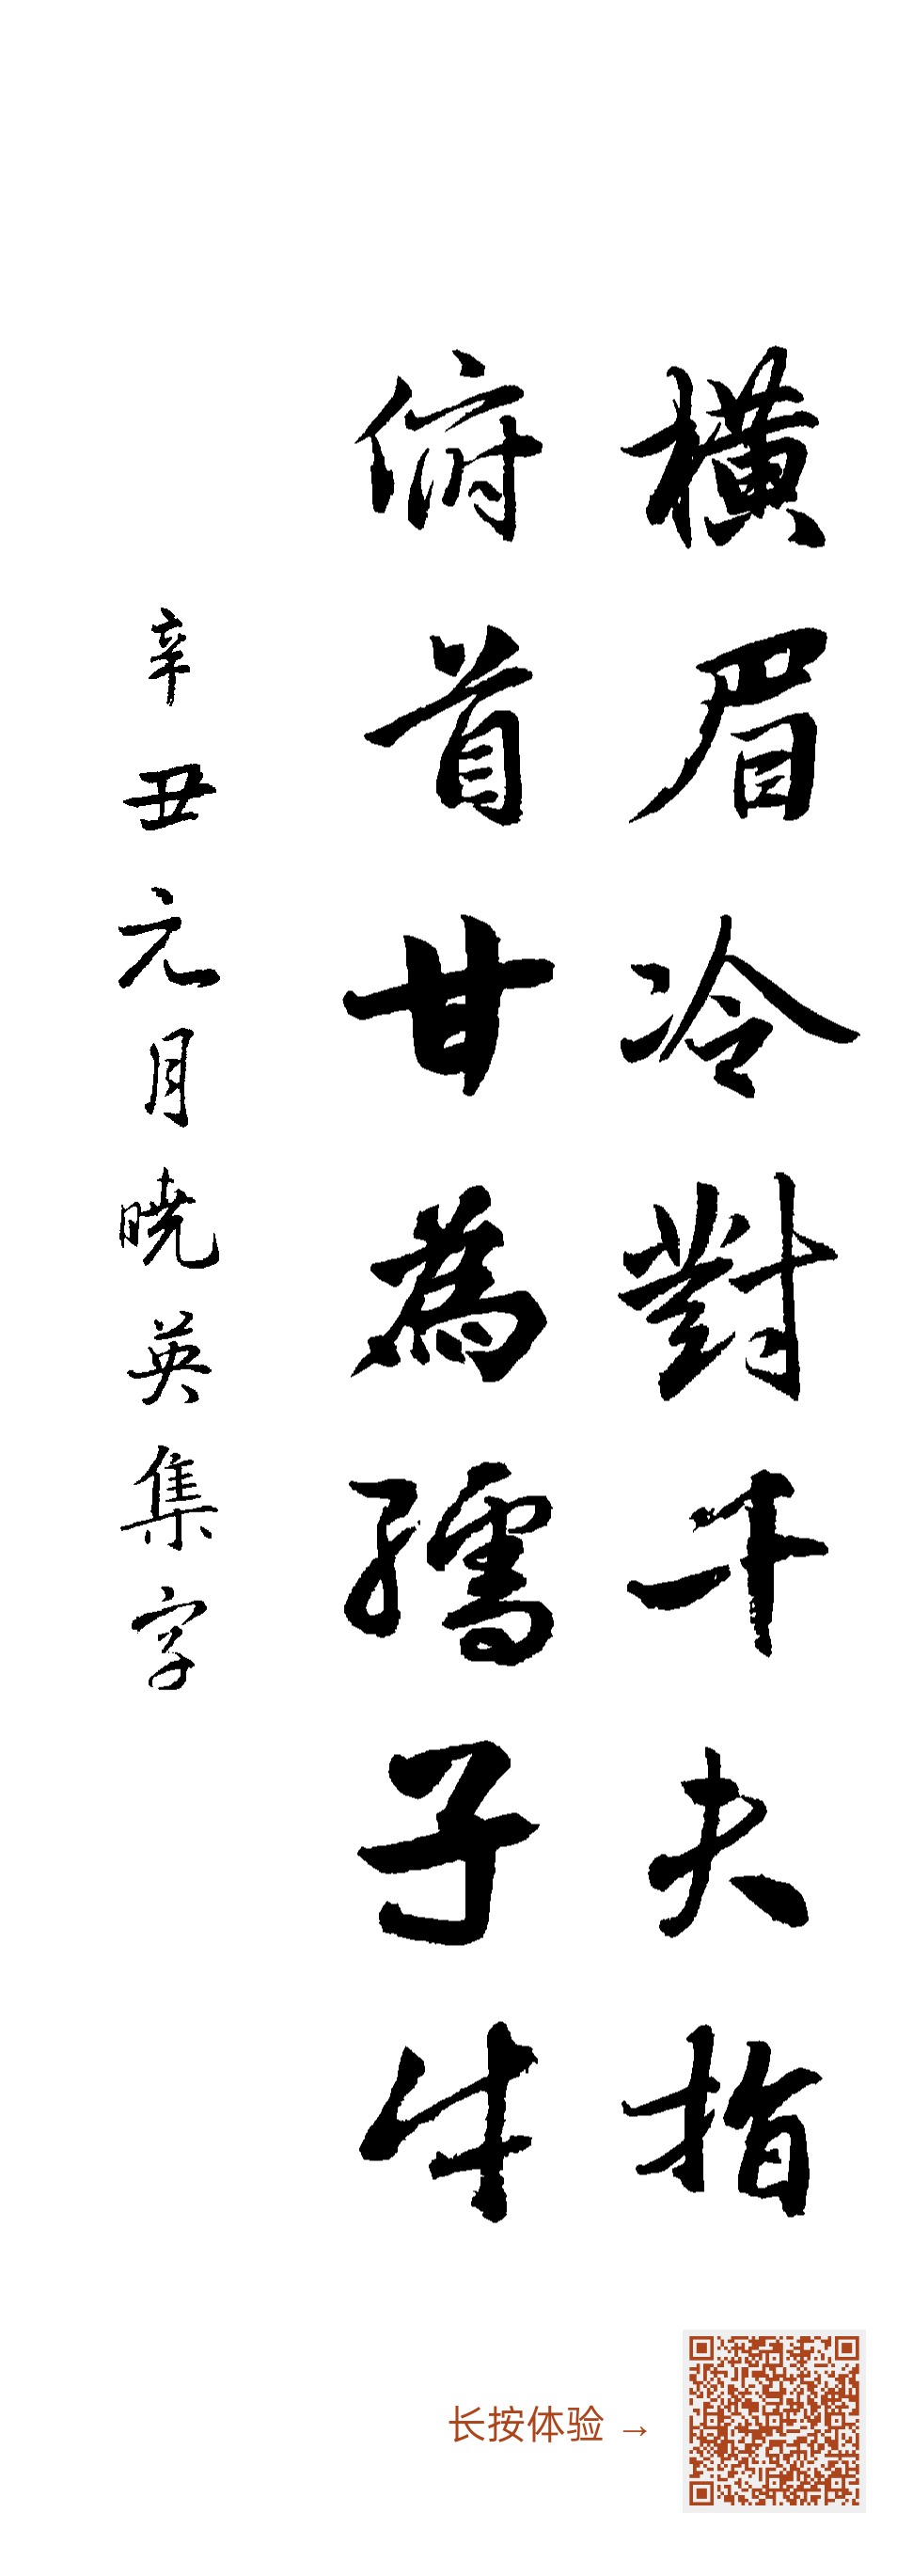 橫眉冷對千夫指
俯首甘為孺子牛
辛丑元月曉英集字
长按体验 →